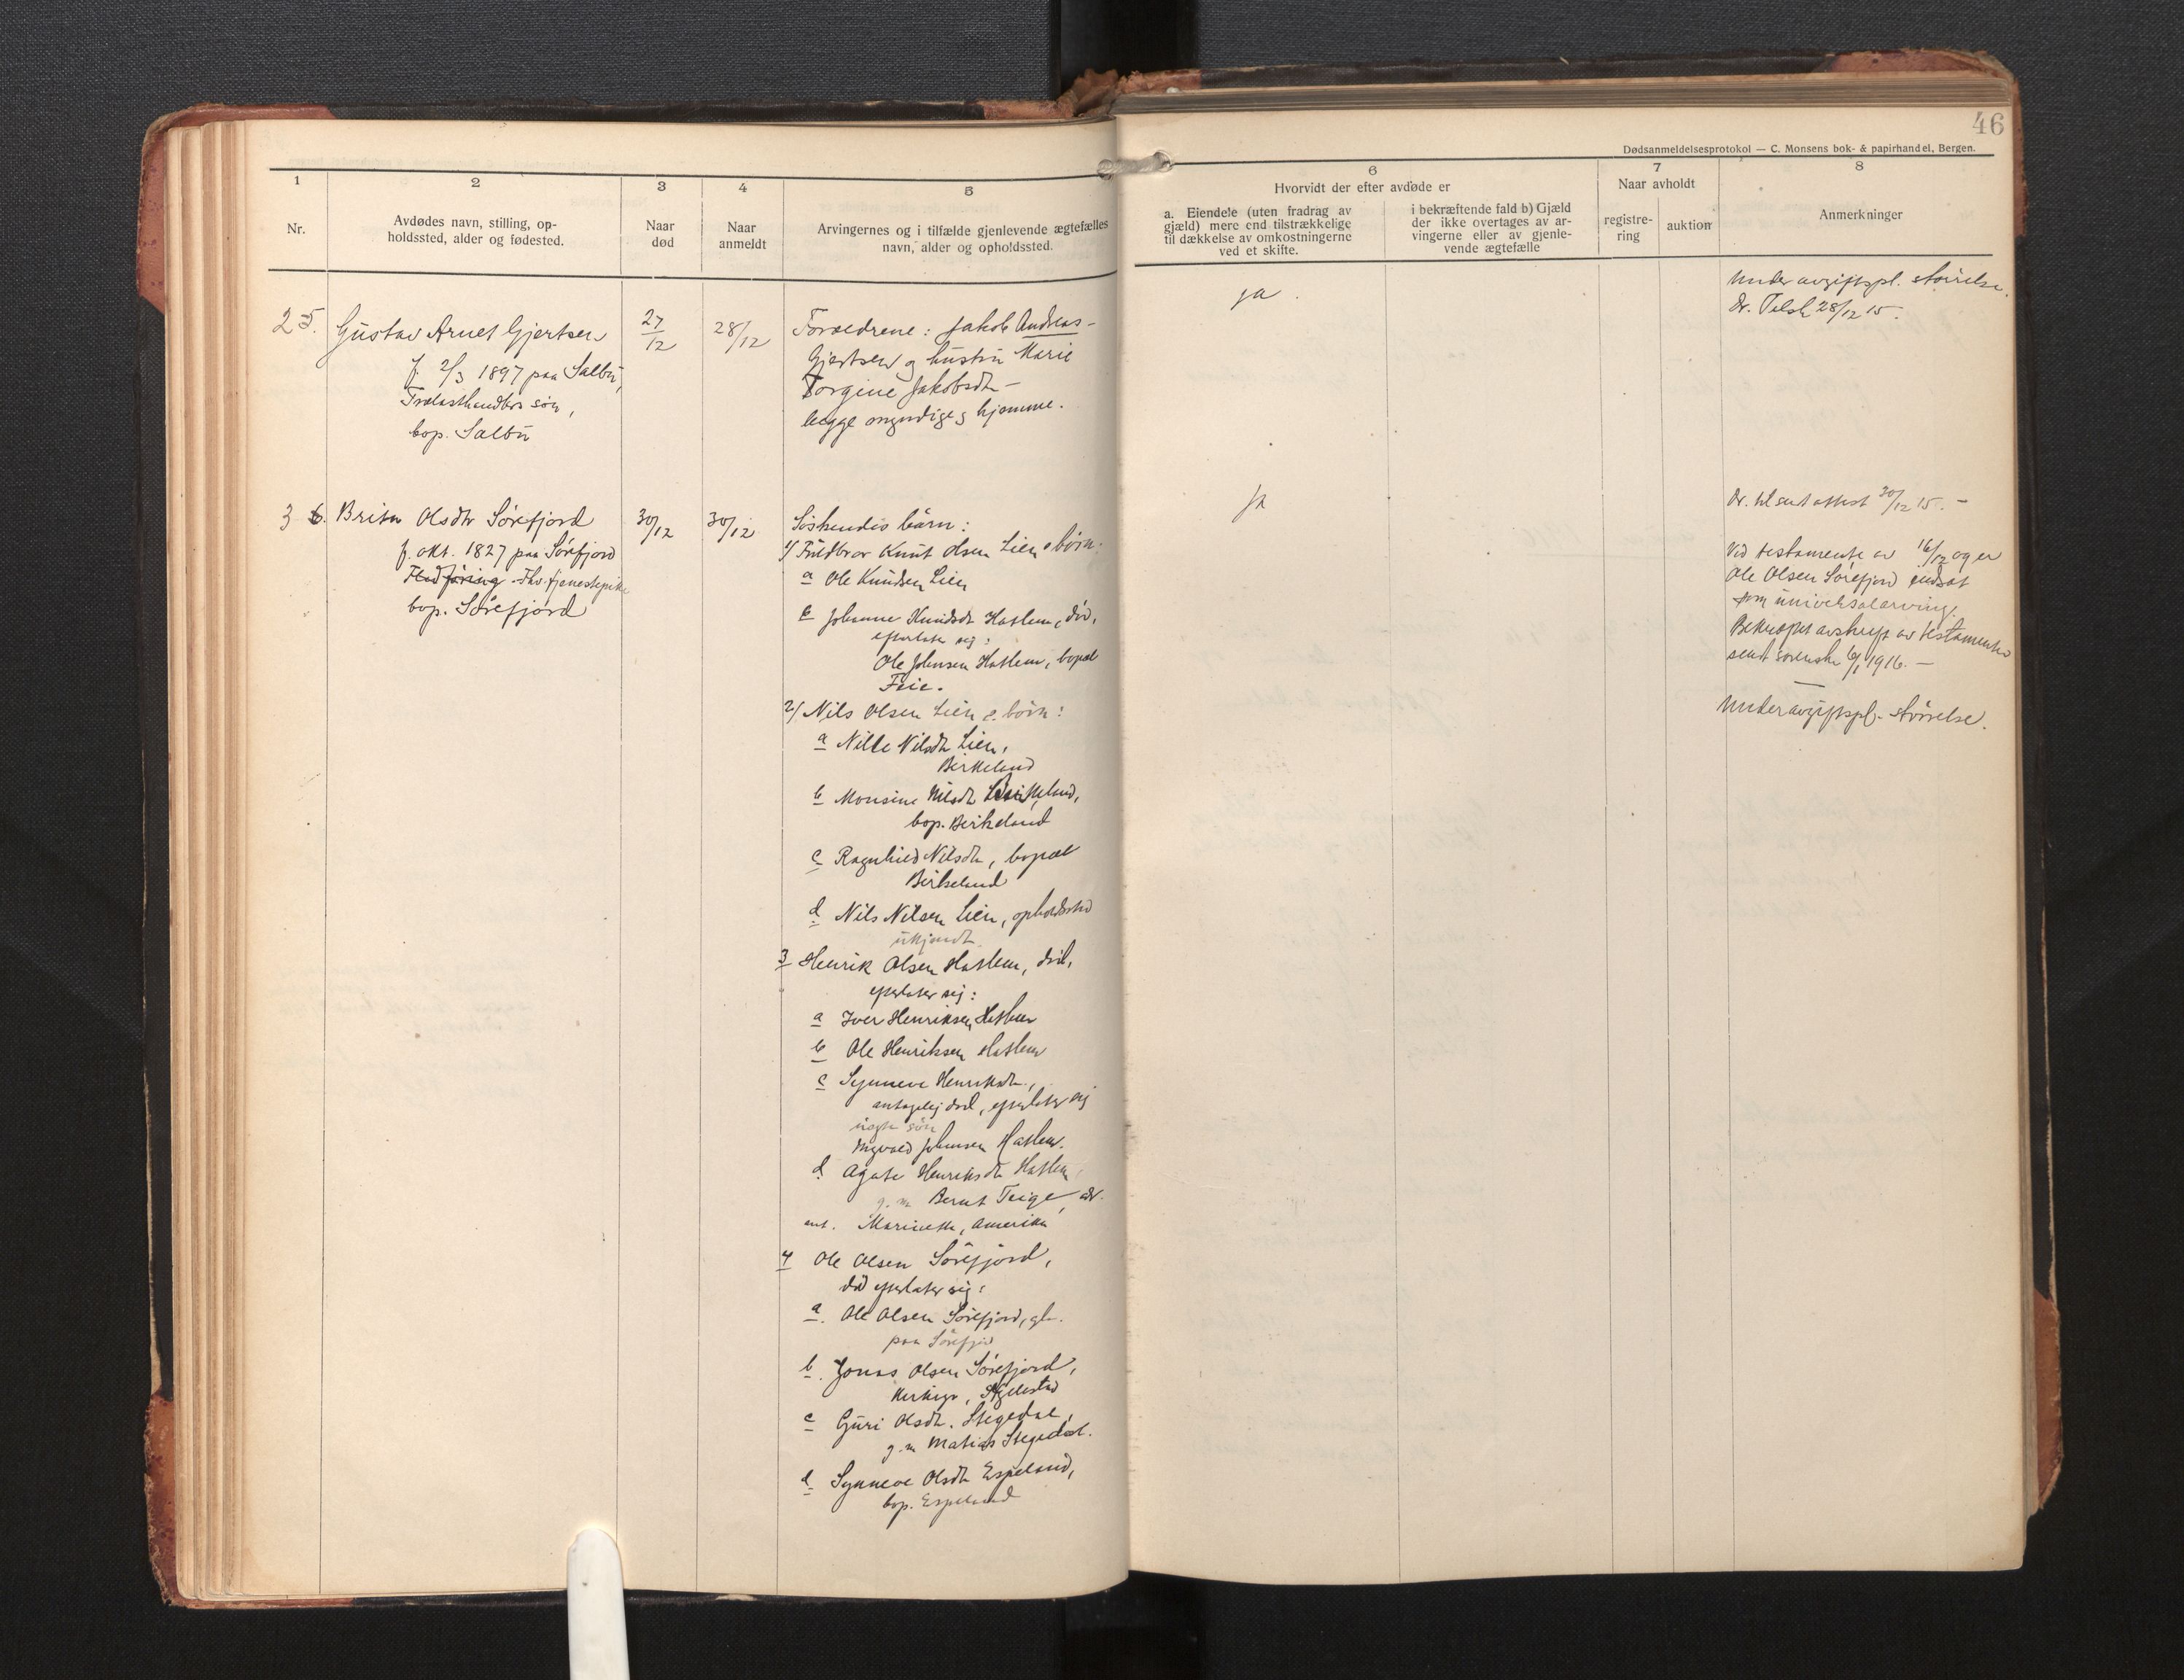 46
Dødsanmeldelsesprotokol — C. Monsens bok- & papirhandel, Bergen.
1
Nr.
2
Avdødes navn, stilling, op-
holdssted, alder og fødested.
3
Naar
død
4
Naar
anmeldt
5
Arvingernes og i tilfælde gjenlevende ægtefælles
navn, alder og opholdssted.
6
Hvorvidt der efter avdøde er
a. Eiendele (uten fradrag av
gjæld) mere end tilstrækkelige
til dækkelse av omkostningerne
ved et skifte.
i bekræftende fald b) Gjæld
der ikke overtages av ar-
vingerne eller av gjenle-
vende ægtefælle
7
Naar avholdt
registre-
ring
auktion
8
Anmerkninger
25.
Gustav Arnet Gjertsen
f. 2/3 1897 paa Salbu,
Trælasthandlers søn,
bop. Salbu
27/12
28/12
Forældrene: Jakob Andreas
Gjertsen og hustru Marie
Torgine Jakobsdtr
begge myndige, hjemme.
ja.
Under avgiftspl. størrelse.
28/12 15.
36.
Brita Olsdtr Sørefjord
f. okt. 1827 paa Sørefjord
Fhv. tjenestepike
bop. Sørefjord
30/12
30/12
Søskendes børn:
1/ Fuldbror Knut Olsen Lien's børn:
a Ole Knudsen Lien
b Johanne Knudsdtr Hatlem, død,
efterlater sig:
Ole Johnsen Hatlem, bopæl
Feie.
2/ Nils Olsen Lien's børn:
a Nille Nilsdtr Lien,
Birkeland
b Monsine Nilsdtr Birkeland,
bop. Birkeland
c Ragnhild Nilsdtr, bopæl
Birkeland
d. Nils Nilsen Lien, opholdssted
ukjendt
3 Henrik Olsen Hatlem, død,
efterlater sig:
a Iver Henriksen Hatlem
b Ole Henriksen Hatlem
c Synneve Henriksdtr.,
antagelig død, efterlater sig
søn
Sigvald Johnsen Hatlem.
d. Agate Henriksdtr Hatlem
g.m. Bernt Teige, adr.
Marinette, Amerika
4 Ole Olsen Sørefjord,
død efterlater sig:
a. Ole Olsen Sørefjord,
paa Sørefjord
b. Jonas Olsen Sørefjord,
c Guri Olsdtr. Stegedal,
g.m. Matias Stegedal.
d. Synneve Olsdtr Espeland,
bop. Espeland
ja
Dr. tilsent attest 30/12 15. —
Ved testamente av 16/12 og er
Ole Olsen Sørefjord indsat
som universalarving.
Bekræftet avskrift av testamentet
sendt sorenskr. 6/1 1916. —
Under avgiftspl. størrelse.